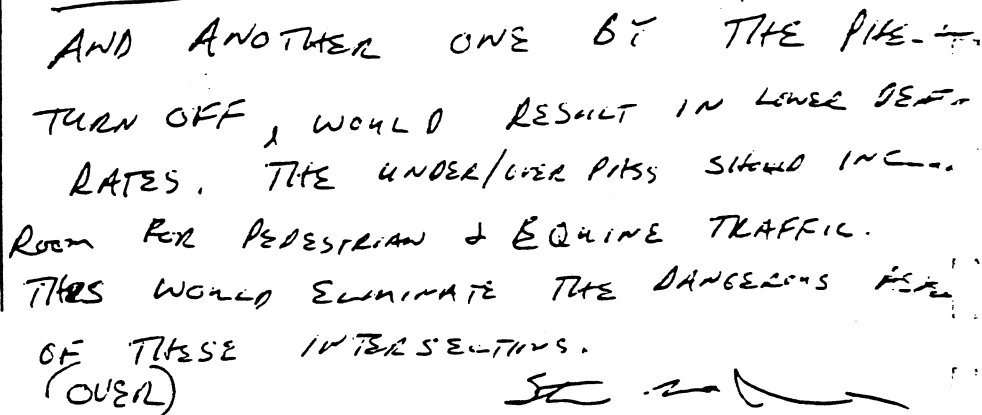 AND ANOTHER ONE BY THE
TURN OFF, WOULD RESULT IN LOWER
RATES. THE UNDER/OVER PASS SHOULD
ROOM FOR PEDESTRIAN & EQUINE TRAFFIC.
THIS WOULD ELIMINATE THE DANGEROUS
OF THESE INTERSECTIONS.
(OVER)